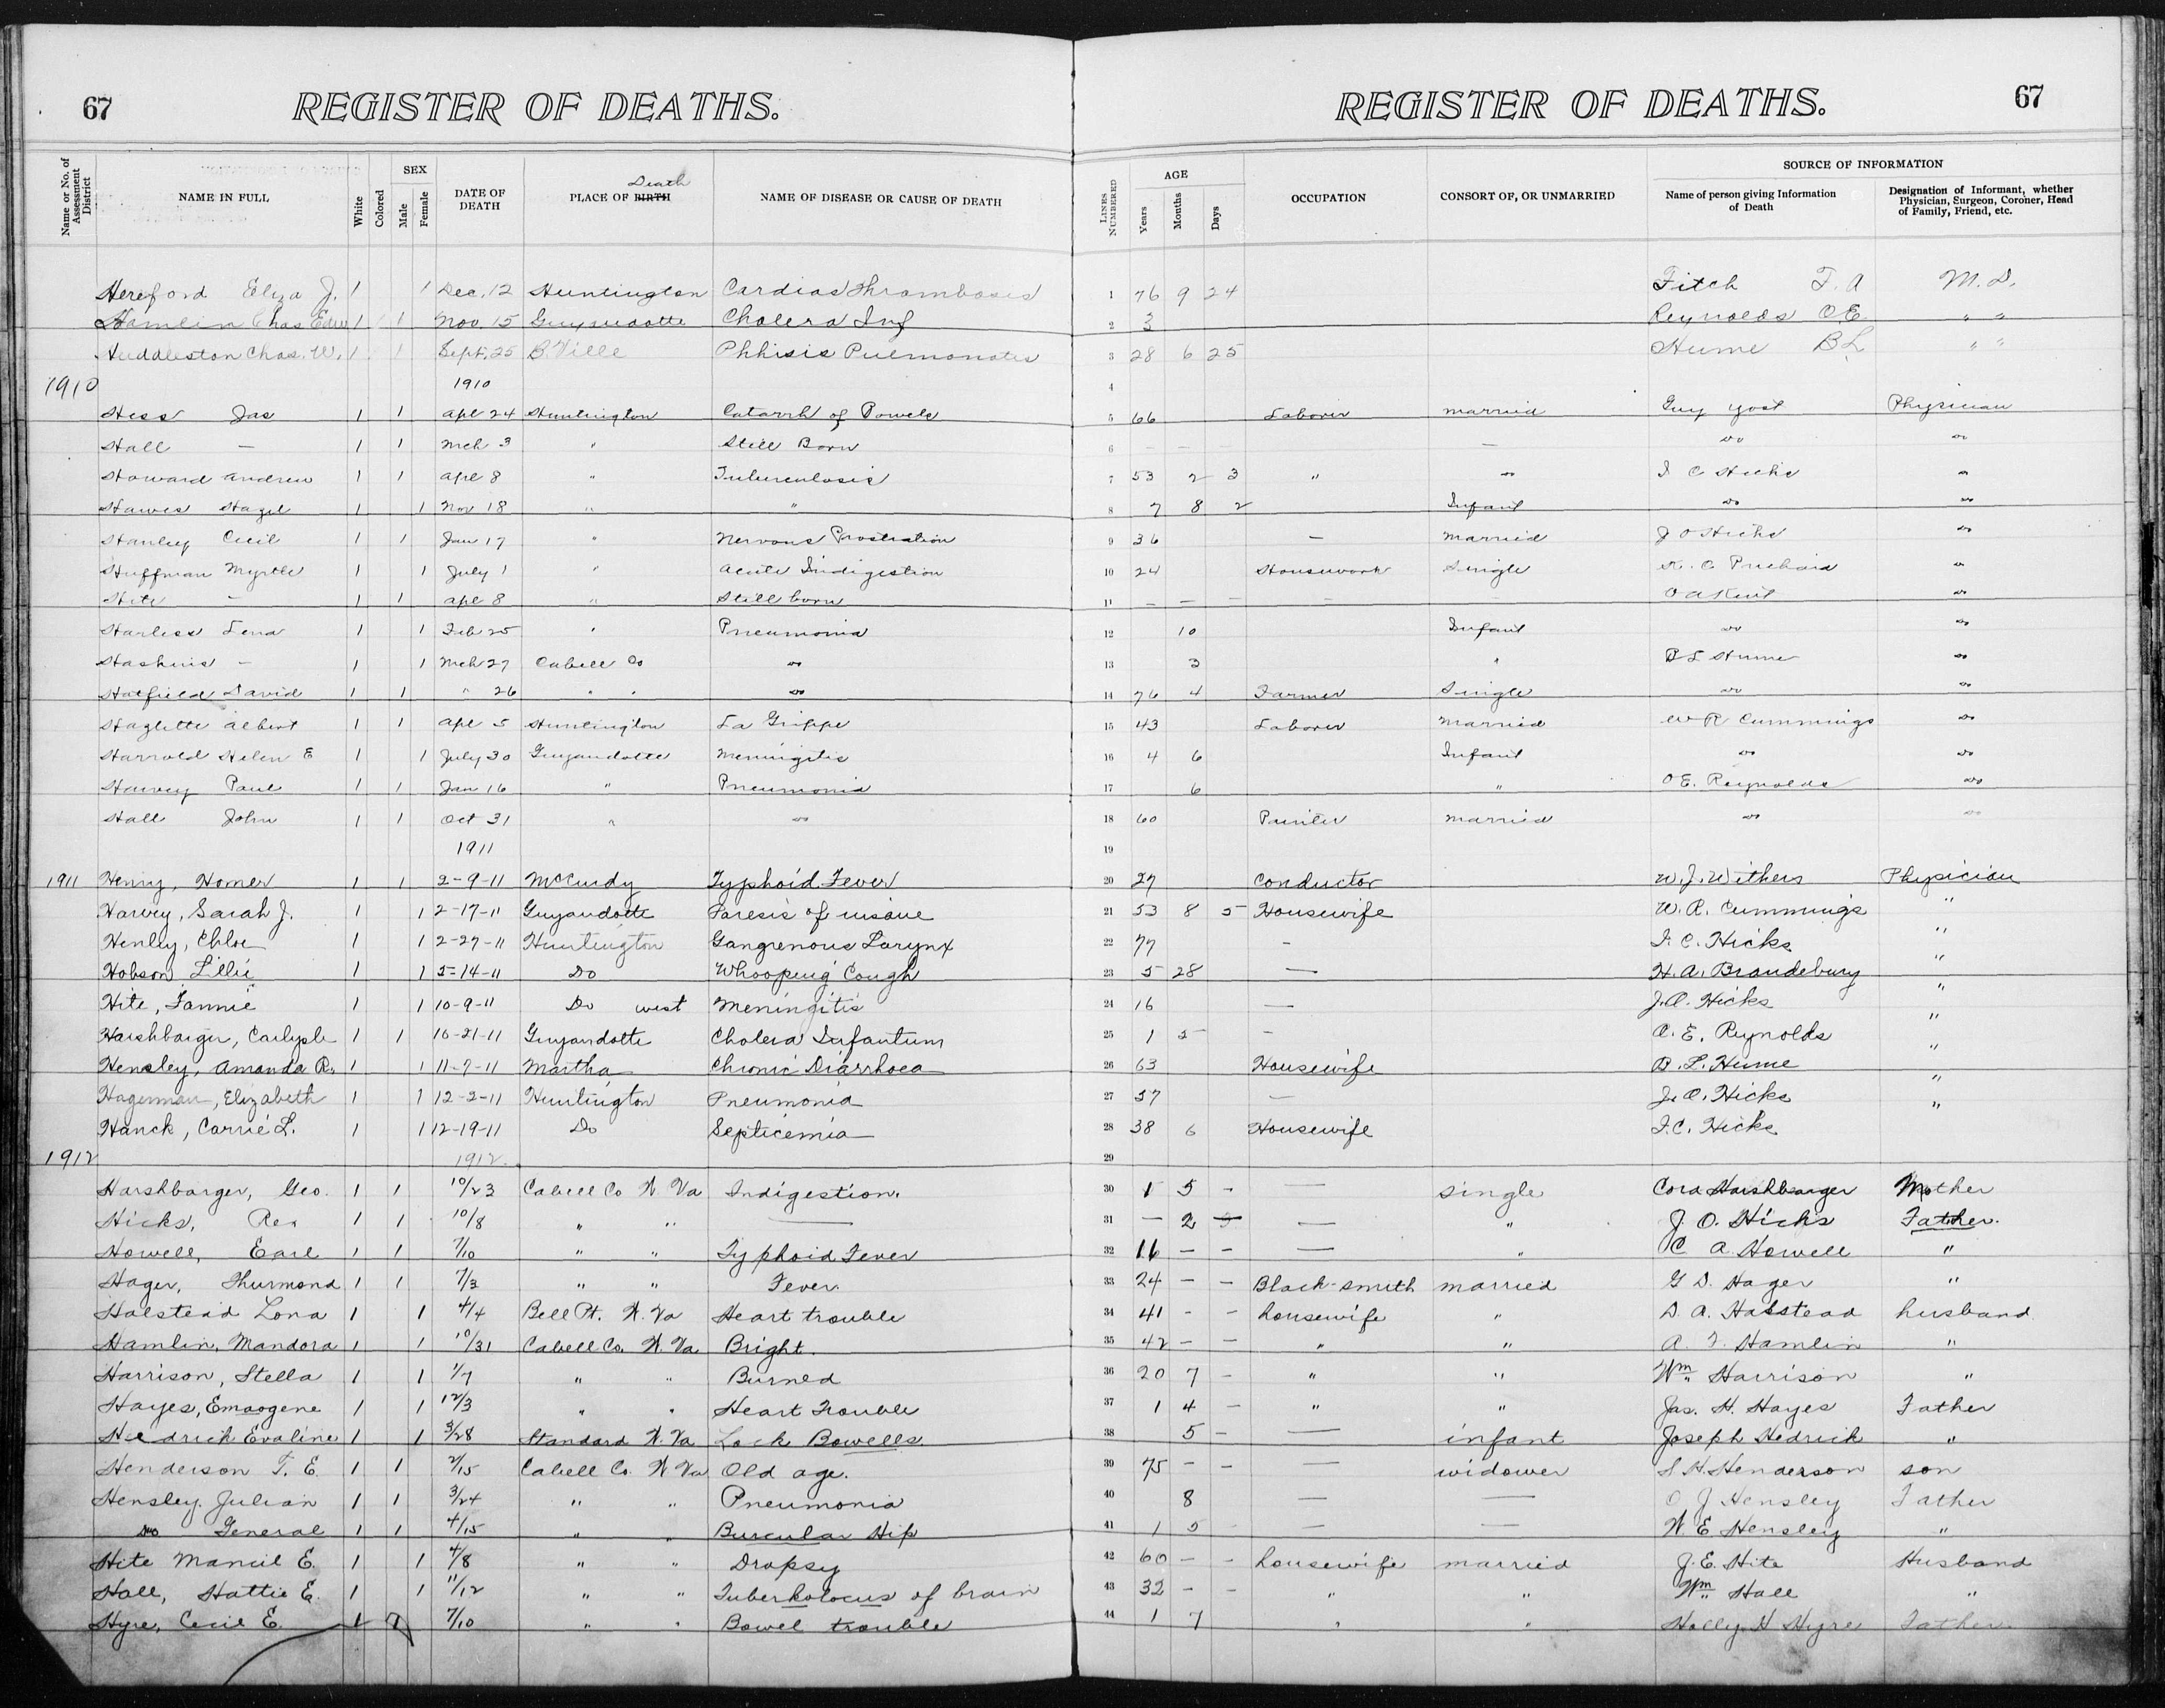 67 REGISTER OF DEATHS. REGISTER OF DEATHS. 67
Name or No. of Assessment District NAME IN FULL White Colored SEX Male Female DATE OF DEATH PLACE OF BIRTH Death NAME OF DISEASE OR CAUSE OF DEATH LINES NUMBERED AGE Years Months Days OCCUPATION CONSORT OF, OR UNMARRIED SOURCE OF INFORMATION Name of person giving Information of Death Designation of Informant, whether Physician, Surgeon, Coroner, Head of Family, Friend, etc.
Hereford Eliza J. 1 1 Dec. 12 Huntington Cardiac Thrombosis 1 76 9 24 Fitch T. A M. D.
Hamlin Chas Edw 1 1 Nov. 15 Guyandotte Cholera Inf 2 3 Reynolds O.E. " "
Huddleston Chas. W. 1 1 Sept. 25 B. Ville Phhisis Pulmonates 3 28 6 25 Hume B L " "
1910 1910 4
Hess Jas 1 1 Apl 24 Huntington Catarrh of Bowels 5 66 Laborer married Guy Yost Physician
Hall – 1 1 Mch 3 " Still Born 6 – – – – do do
Howard Andrew 1 1 Apl 8 " Tuberculosis 7 53 2 3 " do I C Hicks do
Hawes Hazel 1 1 Nov 18 " " 8 7 8 2 Infant do do
Hanley Cecil 1 1 Jan 17 " Nervous Prostration 9 36 – married J O Hicks do
Huffman Myrtle 1 1 July 1 " Acute Indigestion 10 24 Housework Single A. C Prichard do
Hite – 1 1 Apl 8 " Still born 11 – – – – O A Kent do
Harless Lena 1 1 Feb 25 " Pneumonia 12 10 Infant do do
Haskins – 1 1 Mch 27 Cabell Co do 13 3 " B L Hume do
Hatfield David 1 1 " 26 " " do 14 76 4 Farmer Single do do
Haglette Albert 1 1 Apl 5 Huntington La Grippe 15 43 Laborer Married W R Cummings do
Harrold Helen E 1 1 July 30 Guyandotte Meningitis 16 4 6 Infant do do
Harvey Paul 1 1 Jan 16 " Pneumonia 17 6 " O E. Reynolds do
Hall John 1 1 Oct 31 " do 18 60 Painter married do do
1911 19
1911 Henry, Homer 1 1 2-9-11 McCurdy Typhoid Fever 20 27 Conductor W. J. Withers Physician
Harvey, Sarah J. 1 1 2-17-11 Guyandotte Paresis of insane 21 53 8 5 Housewife W. R. Cummings "
Henley, Chloe 1 1 2-27-11 Huntington Gangrenous Larynx 22 77 – I. C. Hicks "
Hobson Lillie 1 1 5-14-11 Do Whooping Cough 23 5 28 – H. A. Brandebury "
Hite, Fannie 1 1 10-9-11 Do west Meningitis 24 16 – J. O. Hicks "
Harshbarger, Carlysle 1 1 10-21-11 Guyandotte Cholera Infantum 25 1 2 – O. E. Reynolds "
Hensley, Amanda R. 1 1 11-7-11 Martha Chronic Diarrhoea 26 63 Housewife B. L. Hume "
Hagerman, Elizabeth 1 1 12-2-11 Huntington Pneumonia 27 57 – J. O. Hicks "
Hanck, Carrie L. 1 1 12-19-11 Do Septicemia 28 38 6 Housewife I. C. Hicks "
1912 1912. 29
Harshbarger, Geo. 1 1 10/23 Cabell Co W Va Indigestion. 30 1 5 – – single Cora Harshbarger Mother
Hicks, Rex 1 1 10/8 " " – 31 – 2 – – " J. O. Hicks Father.
Howell, Earl 1 1 7/10 " " Typhoid Fever 32 16 – – – " C A. Howell "
Hager, Thurmond 1 1 7/3 " " Fever. 33 24 – – Black-smith married G D. Hager "
Halstead Lona 1 1 4/4 Bell Pt. W. Va Heart trouble 34 41 – – housewife " D. A. Halstead husband
Hamlin, Mandora 1 1 10/31 Cabell Co. W. Va Bright. 35 42 – – " " A. T. Hamlin "
Harrison, Stella 1 1 1/7 " " Burned 36 20 7 – " " Wm Harrison "
Hayes, Emaogene 1 1 12/3 " " Heart Trouble 37 1 4 – " " Jas. H. Hayes Father
Hedrick Evaline 1 1 3/28 Standard W. Va Lock Bowells 38 5 – – infant Joseph Hedrick "
Henderson T. E. 1 1 2/15 Cabell Co. W Va Old age. 39 75 – – – widower S H. Henderson son
Hensley. Julian 1 1 3/24 " " Pneumonia 40 8 – – O J Hensley Father
Do General 1 1 4/15 " " Burcular Hip 41 1 5 – – W E Hensley "
Hite Mancil E. 1 1 4/8 " " Dropsy 42 60 – – housewife married J. E. Hite Husband
Hall, Hattie E. 1 1 11/12 " " Tuberkolocus of brain 43 32 – – " " Wm Hall "
Hyre, Cecil E. 1 1 7/10 " " Bowel trouble 44 1 7 " " Holly. H Hyre Father.